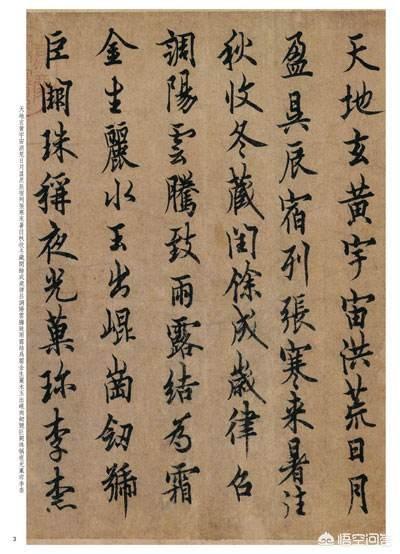 天地玄黃宇宙洪荒日月
盈昃辰宿列張寒来暑往
秋收冬藏閏餘成歲律呂
調陽雲騰致雨露結為霜
金生麗水玉出崐崗劒號
巨闕珠稱夜光菓珎李柰
天地玄黃宇宙洪荒日月盈昃辰宿列張寒來暑往秋收冬藏閏餘成歲律呂調陽雲騰致雨露結爲霜金生麗水玉出崐崗劒號巨闕珠稱夜光菓珍李柰
3
悟空问答